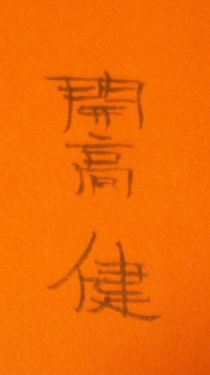 開高
健